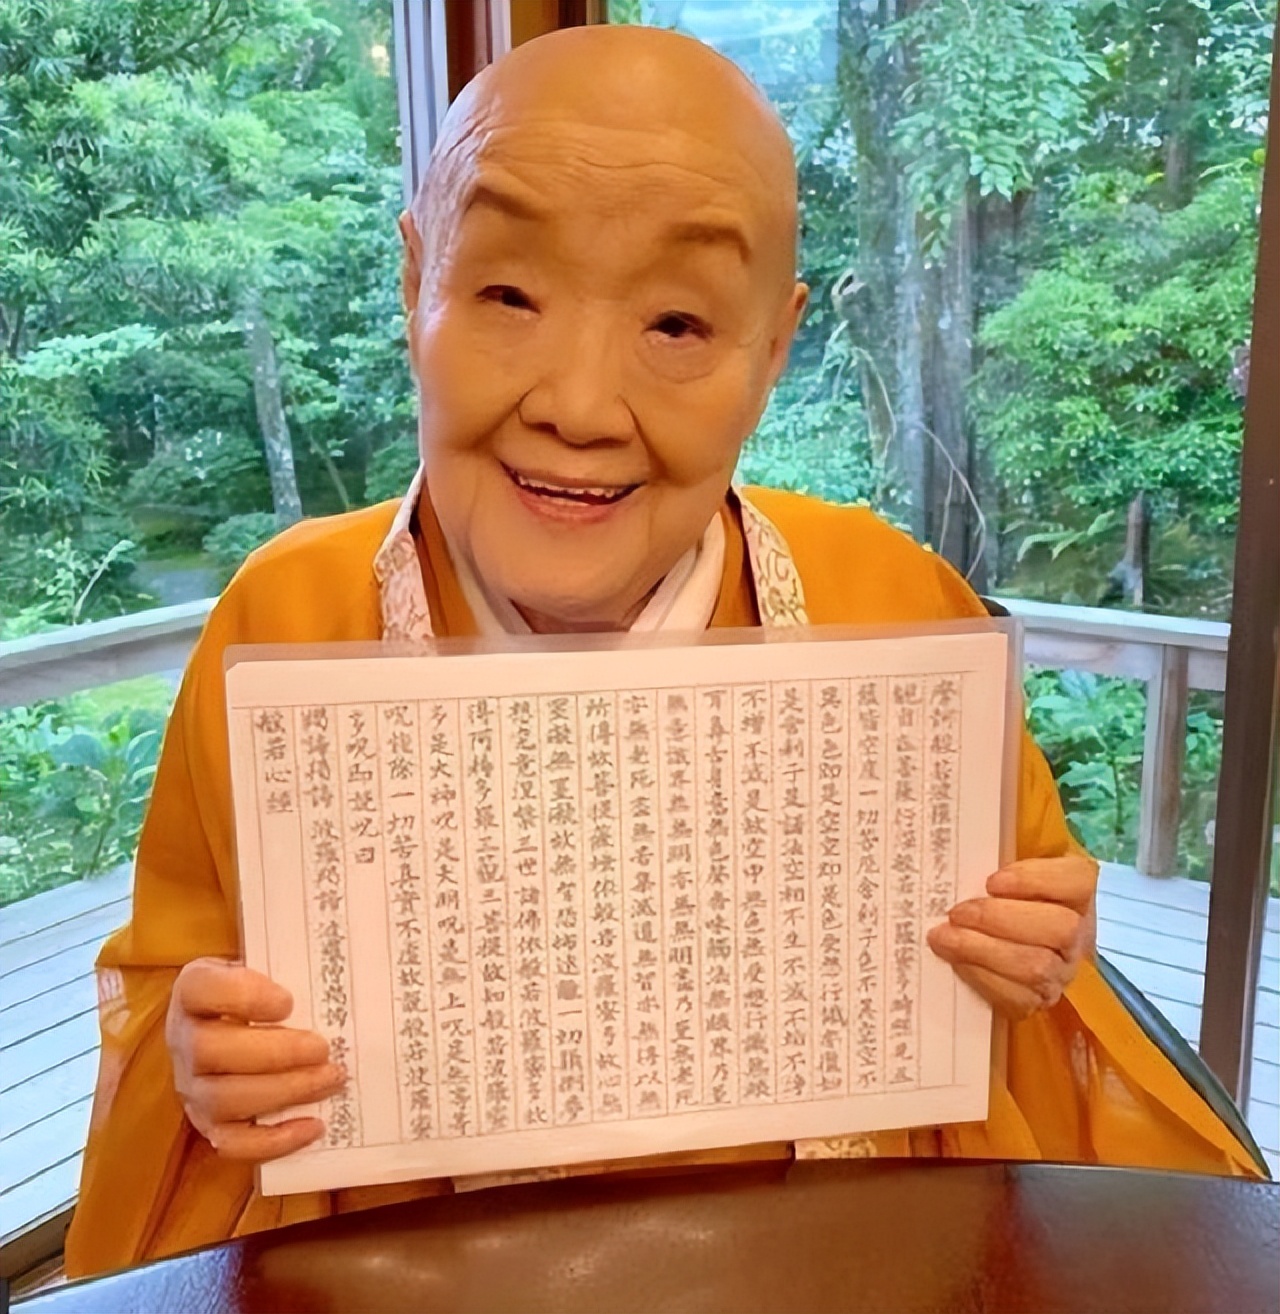 摩訶般若波羅蜜多心経
觀自在菩薩行深般若波羅蜜多時照見五
蘊皆空度一切苦厄舍利子色不異空空不
異色色即是空空即是色受想行識亦復如
是舍利子是諸法空相不生不滅不垢不浄
不増不減是故空中無色無受想行識無眼
耳鼻舌身意無色聲香味觸法無眼界乃至
無意識界無無明亦無無明盡乃至無老死
亦無老死盡無苦集滅道無智亦無得以無
所得故菩提薩埵依般若波羅蜜多故心無
罣礙無罣礙故無有恐怖遠離一切顛倒夢
想究竟涅槃三世諸佛依般若波羅蜜多故
得阿耨多羅三藐三菩提故知般若波羅蜜
多是大神呪是大明呪是無上呪是無等等
呪能除一切苦真實不虚故説般若波羅蜜
多呪即説呪曰
羯諦羯諦 波羅羯諦 波羅僧羯諦 菩 薩婆訶
般若心経